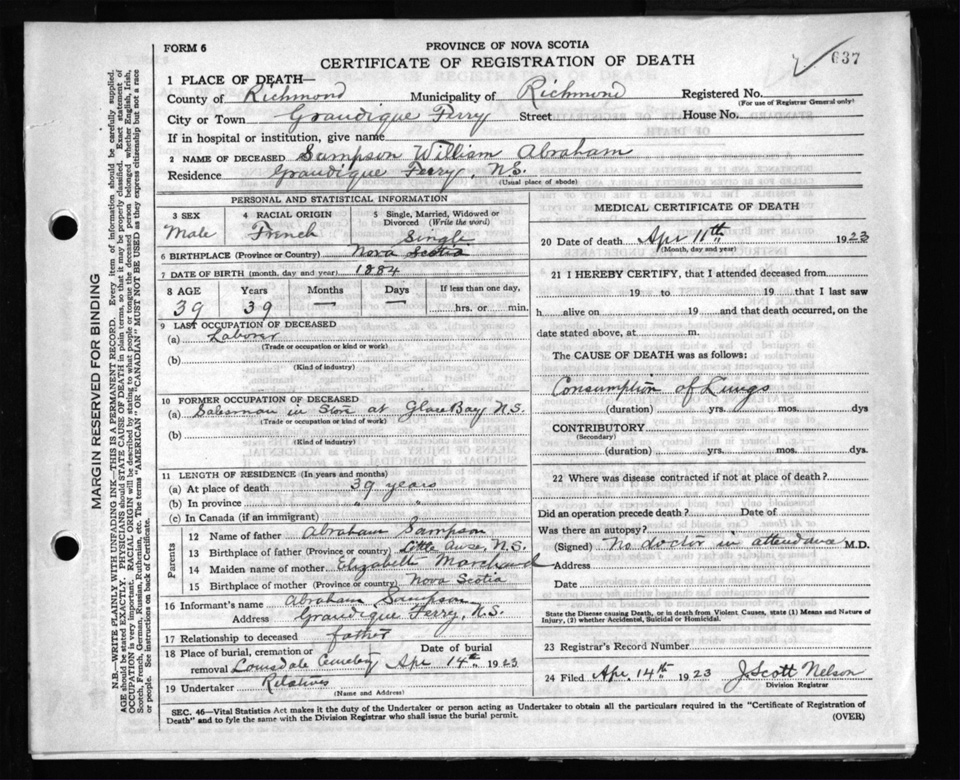 FORM 6
PROVINCE OF NOVA SCOTIA
CERTIFICATE OF REGISTRATION OF DEATH
637
1 PLACE OF DEATH—
County of Richmond Municipality of Richmond Registered No.
(For use of Registrar General only)
City or Town Grandique Ferry Street House No.
If in hospital or institution, give name
2 NAME OF DECEASED Sampson William Abraham
Residence Grandique Ferry, N.S.
(Usual place of abode)
PERSONAL AND STATISTICAL INFORMATION
3 SEX 4 RACIAL ORIGIN 5 Single, Married, Widowed or Divorced (Write the word)
Male French Single
6 BIRTHPLACE (Province or Country) Nova Scotia
7 DATE OF BIRTH (month, day and year) 1884
8 AGE Years Months Days If less than one day,
39 39 — — hrs. or min.
9 LAST OCCUPATION OF DECEASED
(a) Laborer
(Trade or occupation or kind or work)
(b)
(Kind of industry)
10 FORMER OCCUPATION OF DECEASED
(a) Salesman in Store at Glace Bay N.S.
(Trade or occupation or kind or work)
(b)
(Kind of industry)
11 LENGTH OF RESIDENCE (In years and months)
(a) At place of death 39 years
(b) In province "
(c) In Canada (if an immigrant)
Parents
12 Name of father Abraham Sampson
13 Birthplace of father (Province or country) Little Anse, N.S.
14 Maiden name of mother Elizabeth Marchand
15 Birthplace of mother (Province or country) Nova Scotia
16 Informant's name Abraham Sampson
Address Grandique Ferry, N.S.
17 Relationship to deceased father
18 Place of burial, cremation or removal Date of burial
Louisdale Cemetery Apr 14th 1923
19 Undertaker Relatives
(Name and Address)
MEDICAL CERTIFICATE OF DEATH
20 Date of death Apr 11th 1923
(Month, day and year)
21 I HEREBY CERTIFY, that I attended deceased from
19 to 19 that I last saw
h alive on 19 and that death occurred, on the
date stated above, at m.
The CAUSE OF DEATH was as follows:
Consumption of Lungs
(duration) yrs. mos. dys
CONTRIBUTORY
(Secondary)
(duration) yrs. mos. dys.
22 Where was disease contracted if not at place of death?
Did an operation precede death? Date of
Was there an autopsy?
(Signed) No doctor in attendance M.D.
Address
Date
State the Disease causing Death, or in death from Violent Causes, state (1) Means and Nature of
Injury, (2) whether Accidental, Suicidal or Homicidal.
23 Registrar's Record Number
24 Filed Apr. 14th 1923 J. Scott Nelson
Division Registrar
SEC. 46—Vital Statistics Act makes it the duty of the Undertaker or person acting as Undertaker to obtain all the particulars required in the "Certificate of Registration of
Death" and to fyle the same with the Division Registrar who shall issue the burial permit.
(OVER)
MARGIN RESERVED FOR BINDING
N.B.—WRITE PLAINLY WITH UNFADING INK—THIS IS A PERMANENT RECORD. Every item of information should be carefully supplied.
AGE should be stated EXACTLY. PHYSICIANS should STATE CAUSE OF DEATH in plain terms, so that it may be properly classified. Exact statement of
OCCUPATION is very important. RACIAL ORIGIN will be described by stating to what people or tongue the deceased person belonged whether English, Irish,
Scotch, French, German, Russian, Ruthenian, etc. The terms "AMERICAN" OR "CANADIAN" MUST NOT BE USED as they express citizenship but not a race
or people. See instructions on back of Certificate.